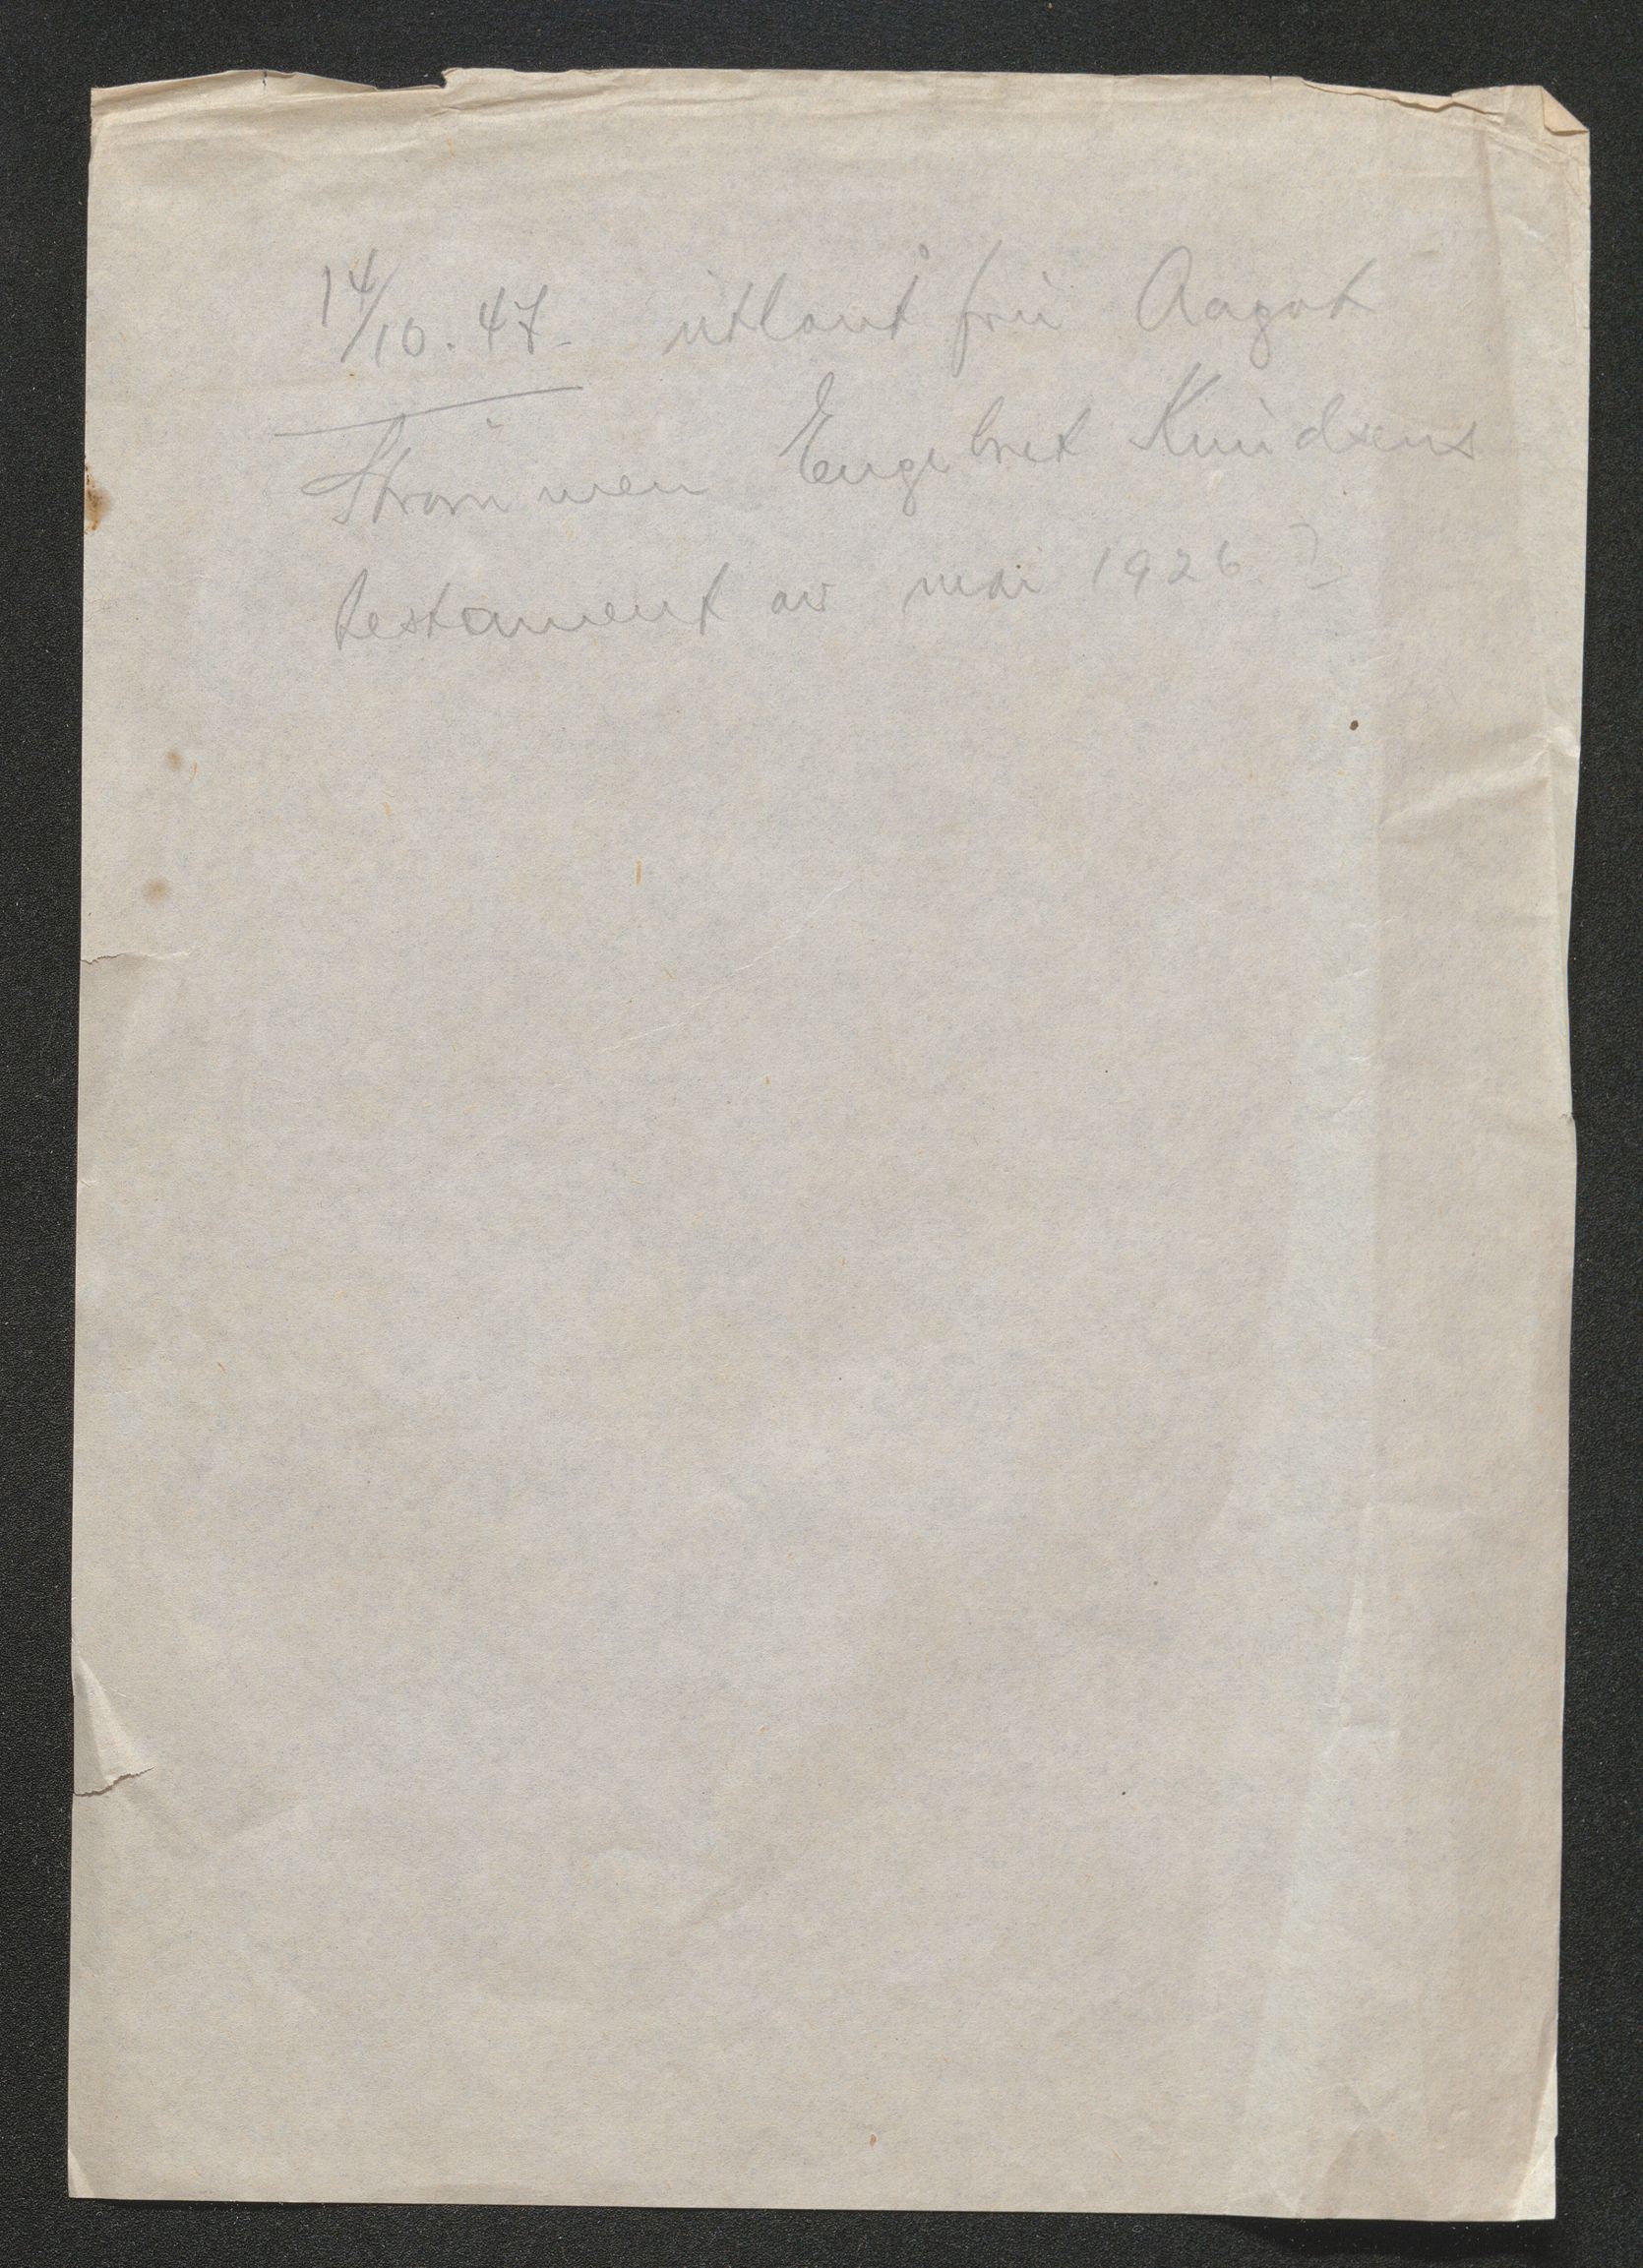 14/10.47. utlånt fru Aagot
Strømmen Engebret Knudsens
testament av mai 1926